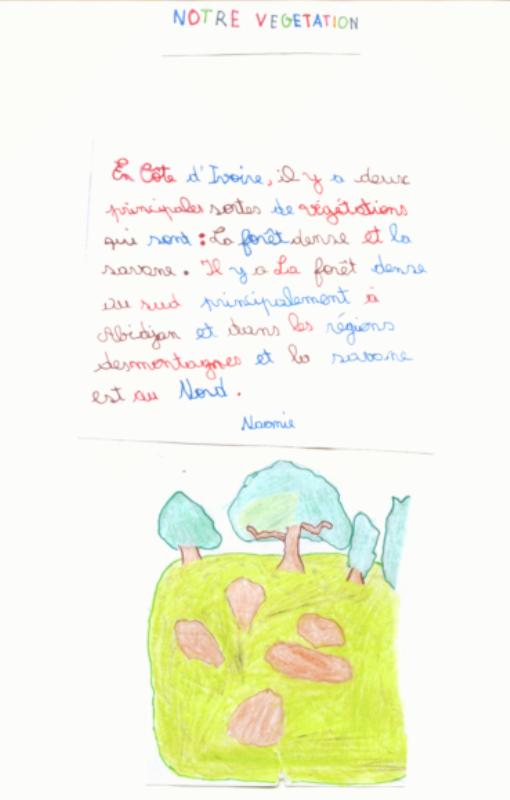 NOTRE VEGETATION
En Côte d'Ivoire, il y a deux
principales sortes de végétations
qui sont : La forêt dense et la
savane. Il y a La forêt dense
au sud principalement à
Abidjan et dans les régions
des montagnes et la savane
est au Nord.
Naomie